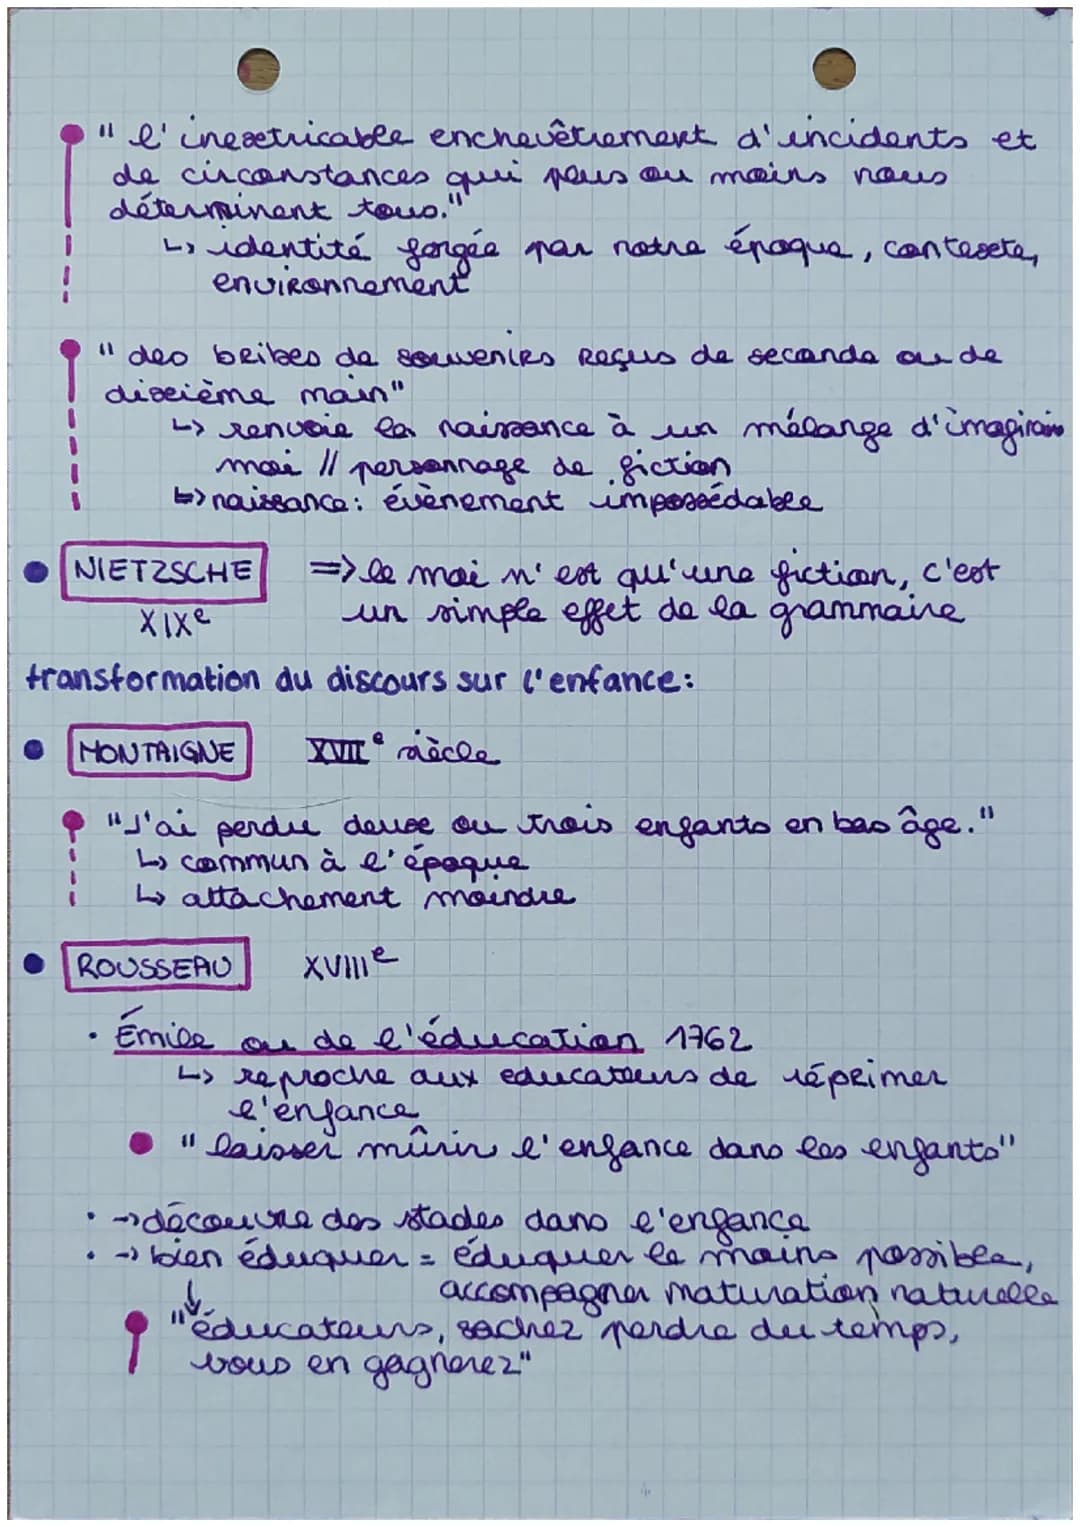 " l'inextricable enchevêtrement d'incidents et
de circonstances qui plus ou moins nous
déterminent tous."
↳ identité forgée par notre époque, contexte,
environnement
" des bribes de souvenirs reçus de seconde ou de
dixième main"
↳ renvoie la naissance à un mélange d'imaginaire
moi // personnage de fiction
↳ naissance: évènement impossédable
NIETZSCHE => le moi n'est qu'une fiction, c'est
XIXe un simple effet de la grammaire
transformation du discours sur l'enfance:
MONTAIGNE XVIIe siècle
"J'ai perdu deux ou trois enfants en bas âge."
↳ commun à l'époque
↳ attachement moindre
ROUSSEAU XVIIIe
• Émile ou de l'éducation 1762
↳ reproche aux educateurs de réprimer
l'enfance
" laisser mûrir l'enfance dans les enfants"
• → découvre des stades dans l'enfance
• → bien éduquer = éduquer le moins possible,
accompagner maturation naturelle
↓
"éducateurs, sachez perdre du temps,
vous en gagnerez"